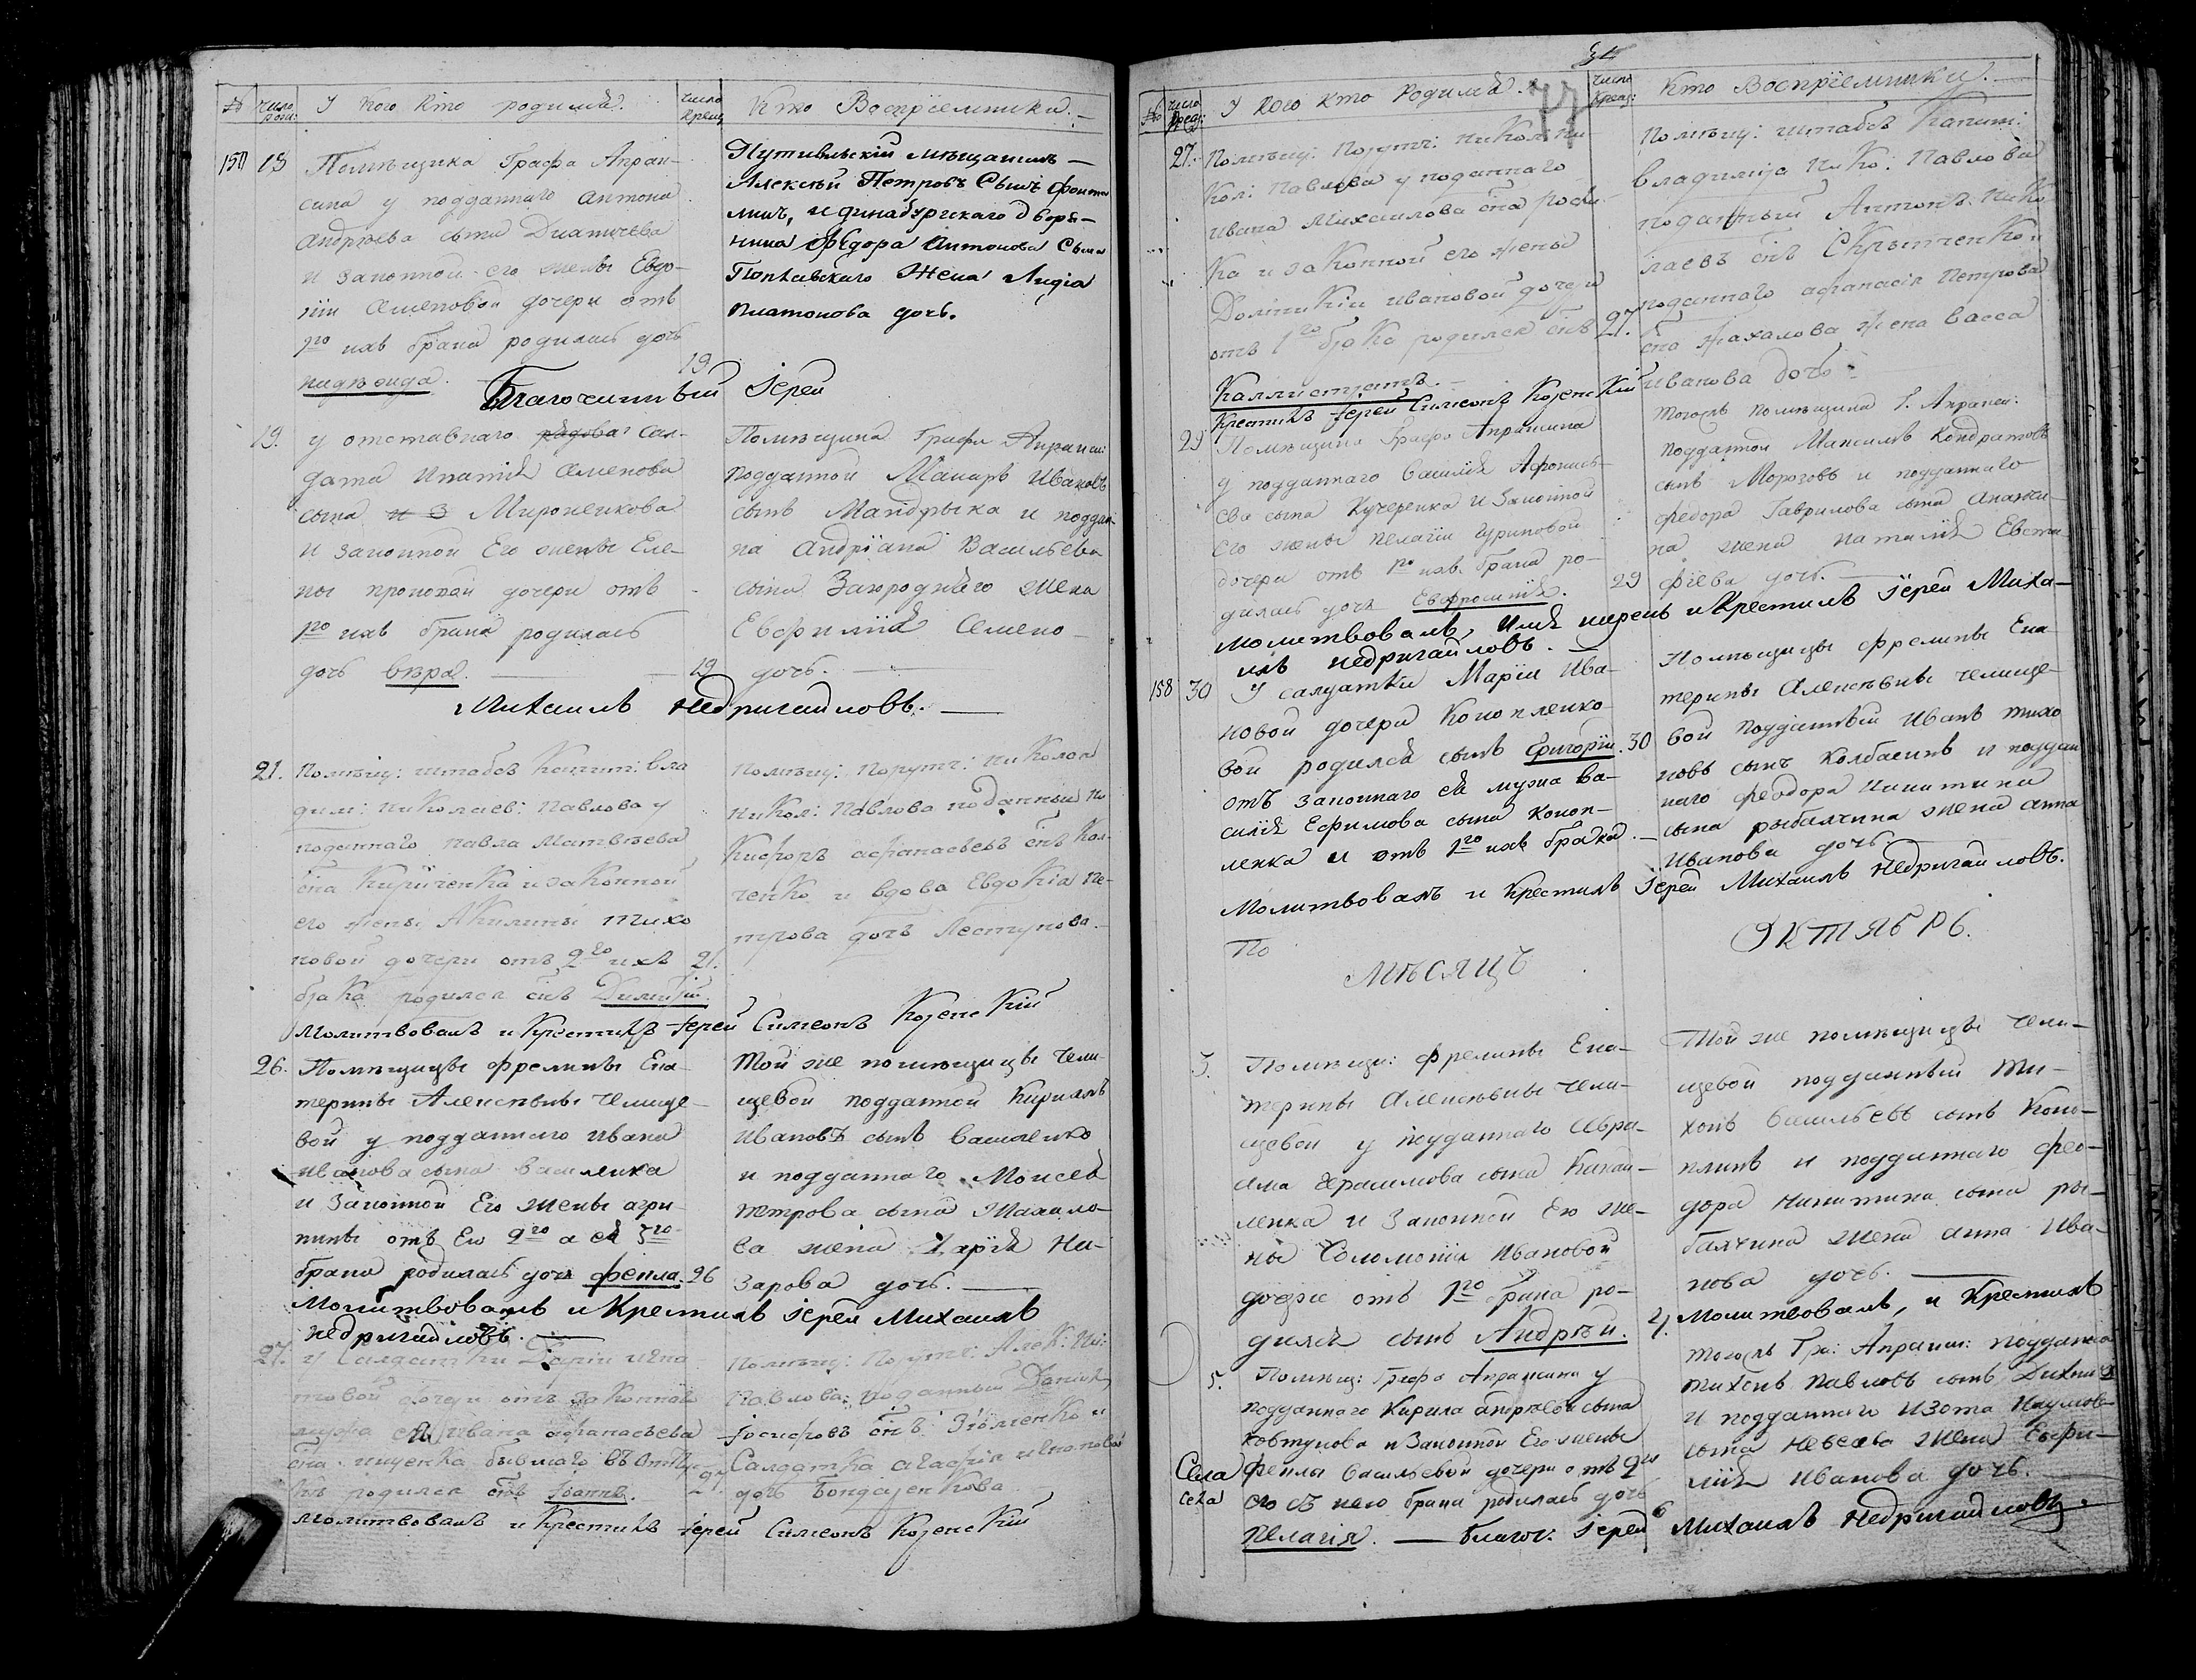 № Число рожд: У кого кто родился. Число крещ Кто Воспріемники.
150 18 Помѣщика Графа Апрак-
сина у подданнаго Антона
Андрѣева сына
и законной его жены Евдо-
кіи Семеновой дочери отъ
1го ихъ брака родилась дочь
19
Путивльскій мѣщанинъ
Алексѣй Петровъ Сынъ
минъ, и динабургскаго дворя-
нина Федора Антонова Сына
Жена Лидіа
Платонова дочь.
Благочинный Іерей
19. у отставнаго рядова сол-
дата Игнатія Семенова
сына и з Мироненкова
и законной Его жены Еле-
ны дочери отъ
1го ихъ брака родилась
дочь вѣра. 19
Помѣщика Графа Апраксин:
подданной Макаръ Ивановъ
сынъ Мандрыка и поддан
на Андріана Васильева
сына Загороднѣго жена
Евфимія Семено-
дочь.
Михаилъ Недригайловъ.
21. Помѣщ: штабсъ Капит: вла
дим: николаев: Павлова у
поданнаго Павла Матвѣева
сна Кириченка и законной
его жены Акилины Тихо
новой дочери отъ 2го ихъ 21.
брака родился снъ Димитрій.
Помѣщ: Поруч: николая
никол: Павлова поданный Ни
кифоръ афанасьевъ снъ Кол-
ченко и вдова Евдокіа Пе-
трова дочь
Молитвовалъ и Крестилъ Іерей Симеонъ
26. Помѣщицы фрелины Ека-
терины Алексѣвны Челище-
вой у подданнаго ивана
иванова сына василенка
и Законной Его жены агри-
пины отъ Его 2го а ея 3го
брака родилась дочь фекла. 26
Той же помѣщицы Чели-
щевой подданной Кирилъ
Ивановъ сынъ Василенко
и подданнаго Моисея
Петрова сына
ва жена Дарія На-
зарова дочь.
Молитвовалъ и Крестилъ Іерей Михаилъ
Недригайловъ.
27. у Салдатки Даріи
товой дочери отъ законнаго
мужа ея ивана афанасьева
сна бывшаго въ
родился снъ Іоаннъ. 27
Помѣщ: Поруч: Алек: ни:
Павлова: поданный Даніилъ
Іосифовъ снъ и
Салдатка агафія
дочь Бондаренкова
Молитвовалъ и Крестилъ Іерей Симеонъ
34
77
№ Число Рожд: У кого кто Родился. Число Крещ: Кто Воспріемники.
27. Помѣщ: Поруч: Николая Ни
Кол: Павлова у поданнаго
ивана Михаилова сна
ка и законной его жены
Домникіи ивановой дочери
отъ 1го брака родился снъ 27.
Каллистратъ.
Помѣщ: штабсъ Капит:
владиміра Нико: Павлова
поданный Антонъ Нико
лаевъ снъ Скрыпченко и
поданнаго афанасія Петрова
сна жена васса
иванова дочь
Крестилъ Іерей Симеонъ
29 Помѣщика Графа Апраксина
у подданнаго василія Афонась-
ева сына Кучеренка и Законной
его жены пелагіи
дочери отъ 1го ихъ брака ро-
дилась дочь Евфросинія. 29
Тогожъ помѣщика Г. Апраксин:
подданной Максимъ Кондратовъ
сынъ Морозовъ и подданнаго
федора Гаврилова сына
на жена наталія Евста-
фіева дочь.
Молитвовалъ, Имя нарекъ и Крестилъ Іерей Миха-
илъ Недригайловъ.
158 30 У салдатки Маріи Ива-
новой дочери Коноплѣнко-
вой родился сынъ Григорій. 30
отъ законнаго ея мужа ва-
силія Ефимова сына Коноп-
ленка и отъ 1го ихъ брака.
Помѣщицы фрелины Ека
терины Алексѣвны Челище-
вой подданный Иванъ тихо
новъ сынъ Колбасинъ и поддан
наго Феодора Никитина
сына рыбалчина жена анна
Иванова дочь.
Молитвовалъ и Крестилъ Іерей Михаилъ Недригайловъ.
По
МѢСЯЦЪ ОКТЯБРЬ.
3. Помѣщи: фрелины Ека-
терины Алексѣвны Чели-
щевой у подданнаго Авра-
ама Герасимова сына
ленка и Законной Его же-
ны Соломоніи Ивановой
дочери отъ 1го брака ро-
дился сынъ Андрѣй. 4.
Той же помѣщицы Чели-
щевой подданный Ти-
хонъ васильевъ сынъ Коно-
плинъ и подданнаго фео-
дора Никитина сына ры-
балчина жена анна Ива-
нова дочь.
Молитвовалъ, и Крестилъ
5. Помѣщ: Графа Апраксина у
подданнаго Кирила андрѣева сына
ковтунова и Законной Его жены
Феклы васильевой дочери отъ 2го
его съ нею брака родилась дочь
Пелагія. 6
Села
села
Тогожъ Гра: Апраксин: подданной
тихонъ Павловъ сынъ
и подданнаго Изота Наумова
сына жена Евфи-
мія Иванова дочь.
Благоч: Іерей Михаилъ Недригайловъ.